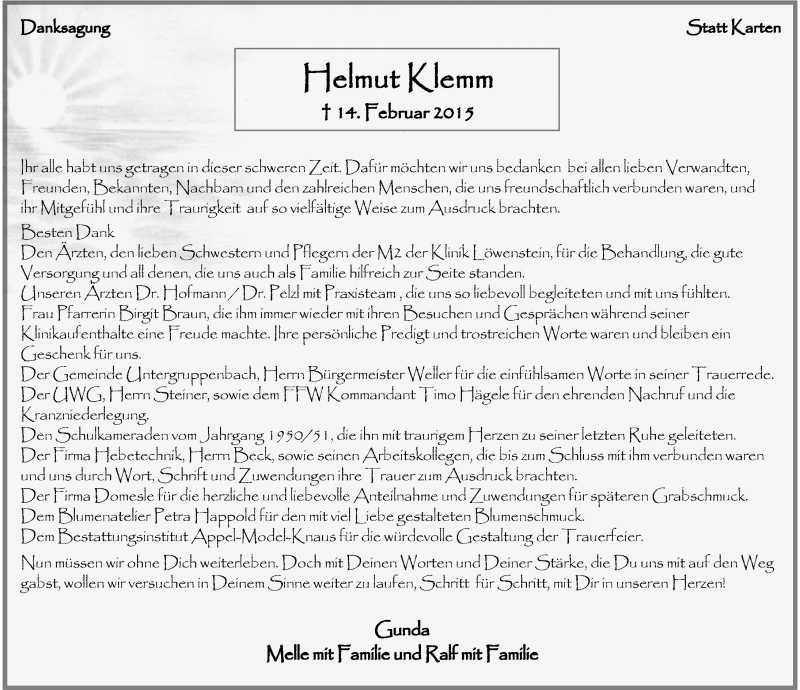 Danksagung
Statt Karten
Helmut Klemm
† 14. Februar 2015
Ihr alle habt uns getragen in dieser schweren Zeit. Dafür möchten wir uns bedanken bei allen lieben Verwandten,
Freunden, Bekannten, Nachbarn und den zahlreichen Menschen, die uns freundschaftlich verbunden waren, und
ihr Mitgefühl und ihre Traurigkeit auf so vielfältige Weise zum Ausdruck brachten.
Besten Dank
Den Ärzten, den lieben Schwestern und Pflegern der M2 der Klinik Löwenstein, für die Behandlung, die gute
Versorgung und all denen, die uns auch als Familie hilfreich zur Seite standen.
Unseren Ärzten Dr. Hofmann / Dr. Pelzl mit Praxisteam , die uns so liebevoll begleiteten und mit uns fühlten.
Frau Pfarrerin Birgit Braun, die ihm immer wieder mit ihren Besuchen und Gesprächen während seiner
Klinikaufenthalte eine Freude machte. Ihre persönliche Predigt und trostreichen Worte waren und bleiben ein
Geschenk für uns.
Der Gemeinde Untergruppenbach, Herrn Bürgermeister Weller für die einfühlsamen Worte in seiner Trauerrede.
Der UWG, Herrn Steiner, sowie dem FFW Kommandant Timo Hägele für den ehrenden Nachruf und die
Kranzniederlegung.
Den Schulkameraden vom Jahrgang 1950/51, die ihn mit traurigem Herzen zu seiner letzten Ruhe geleiteten.
Der Firma Hebetechnik, Herrn Beck, sowie seinen Arbeitskollegen, die bis zum Schluss mit ihm verbunden waren
und uns durch Wort, Schrift und Zuwendungen ihre Trauer zum Ausdruck brachten.
Der Firma Domesle für die herzliche und liebevolle Anteilnahme und Zuwendungen für späteren Grabschmuck.
Dem Blumenatelier Petra Happold für den mit viel Liebe gestalteten Blumenschmuck.
Dem Bestattungsinstitut Appel-Model-Knaus für die würdevolle Gestaltung der Trauerfeier.
Nun müssen wir ohne Dich weiterleben. Doch mit Deinen Worten und Deiner Stärke, die Du uns mit auf den Weg
gabst, wollen wir versuchen in Deinem Sinne weiter zu laufen, Schritt für Schritt, mit Dir in unseren Herzen!
Gunda
Melle mit Familie und Ralf mit Familie